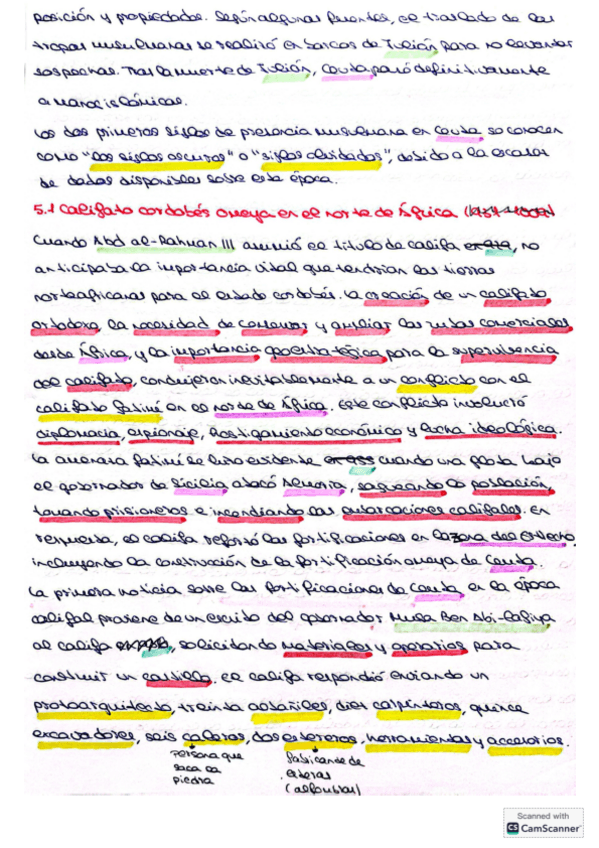 posición y propiedades. Según algunas fuentes, el traslado de las
tropas musulmanas se realizó en barcos de Julián para no levantar
sospechas. Tras la muerte de Julián, Ceuta pasó definitivamente
a manos islámicas.
Los dos primeros siglos de presencia musulmana en Ceuta se conocen
como "los siglos oscuros" o "siglos olvidados", debido a la escasez
de datos disponibles sobre esta época.
5.1 Califato cordobés omeya en el norte de África
Cuando Abd al-Rahman III asumió el título de califa, no
anticipaba la importancia vital que tendrían las tierras
norteafricanas para el estado cordobés. La creación de un califato
ortodoxo, la necesidad de conservar y ampliar las rutas comerciales
desde África, y la importancia geoestratégica para la supervivencia
del califato, condujeron inevitablemente a un conflicto con el
califato fatimí en el norte de África. Este conflicto involucró
diplomacia, espionaje, hostigamiento económico y lucha ideológica.
La amenaza fatimí se hizo evidente cuando una flota bajo
el gobernador de Sicilia atacó Almería, saqueando la población,
tomando prisioneros e incendiando las embarcaciones califales. En
respuesta, el califa reforzó las fortificaciones en la zona del Estrecho,
incluyendo la construcción de la fortificación omeya de Ceuta.
La primera noticia sobre las fortificaciones de Ceuta en la época
califal proviene de un escrito del gobernador Musa Ben Abi-l-afiya
al califa, solicitando materiales y operarios para
construir un castillo. El califa respondió enviando un
protoarquitecto, treinta albañiles, diez carpinteros, quince
excavadores, seis caleros, dos estereros, herramientas y accesorios.
Persona que
saca la
piedra
fabricante de
esteras
(alfombras)
Scanned with
CS CamScanner